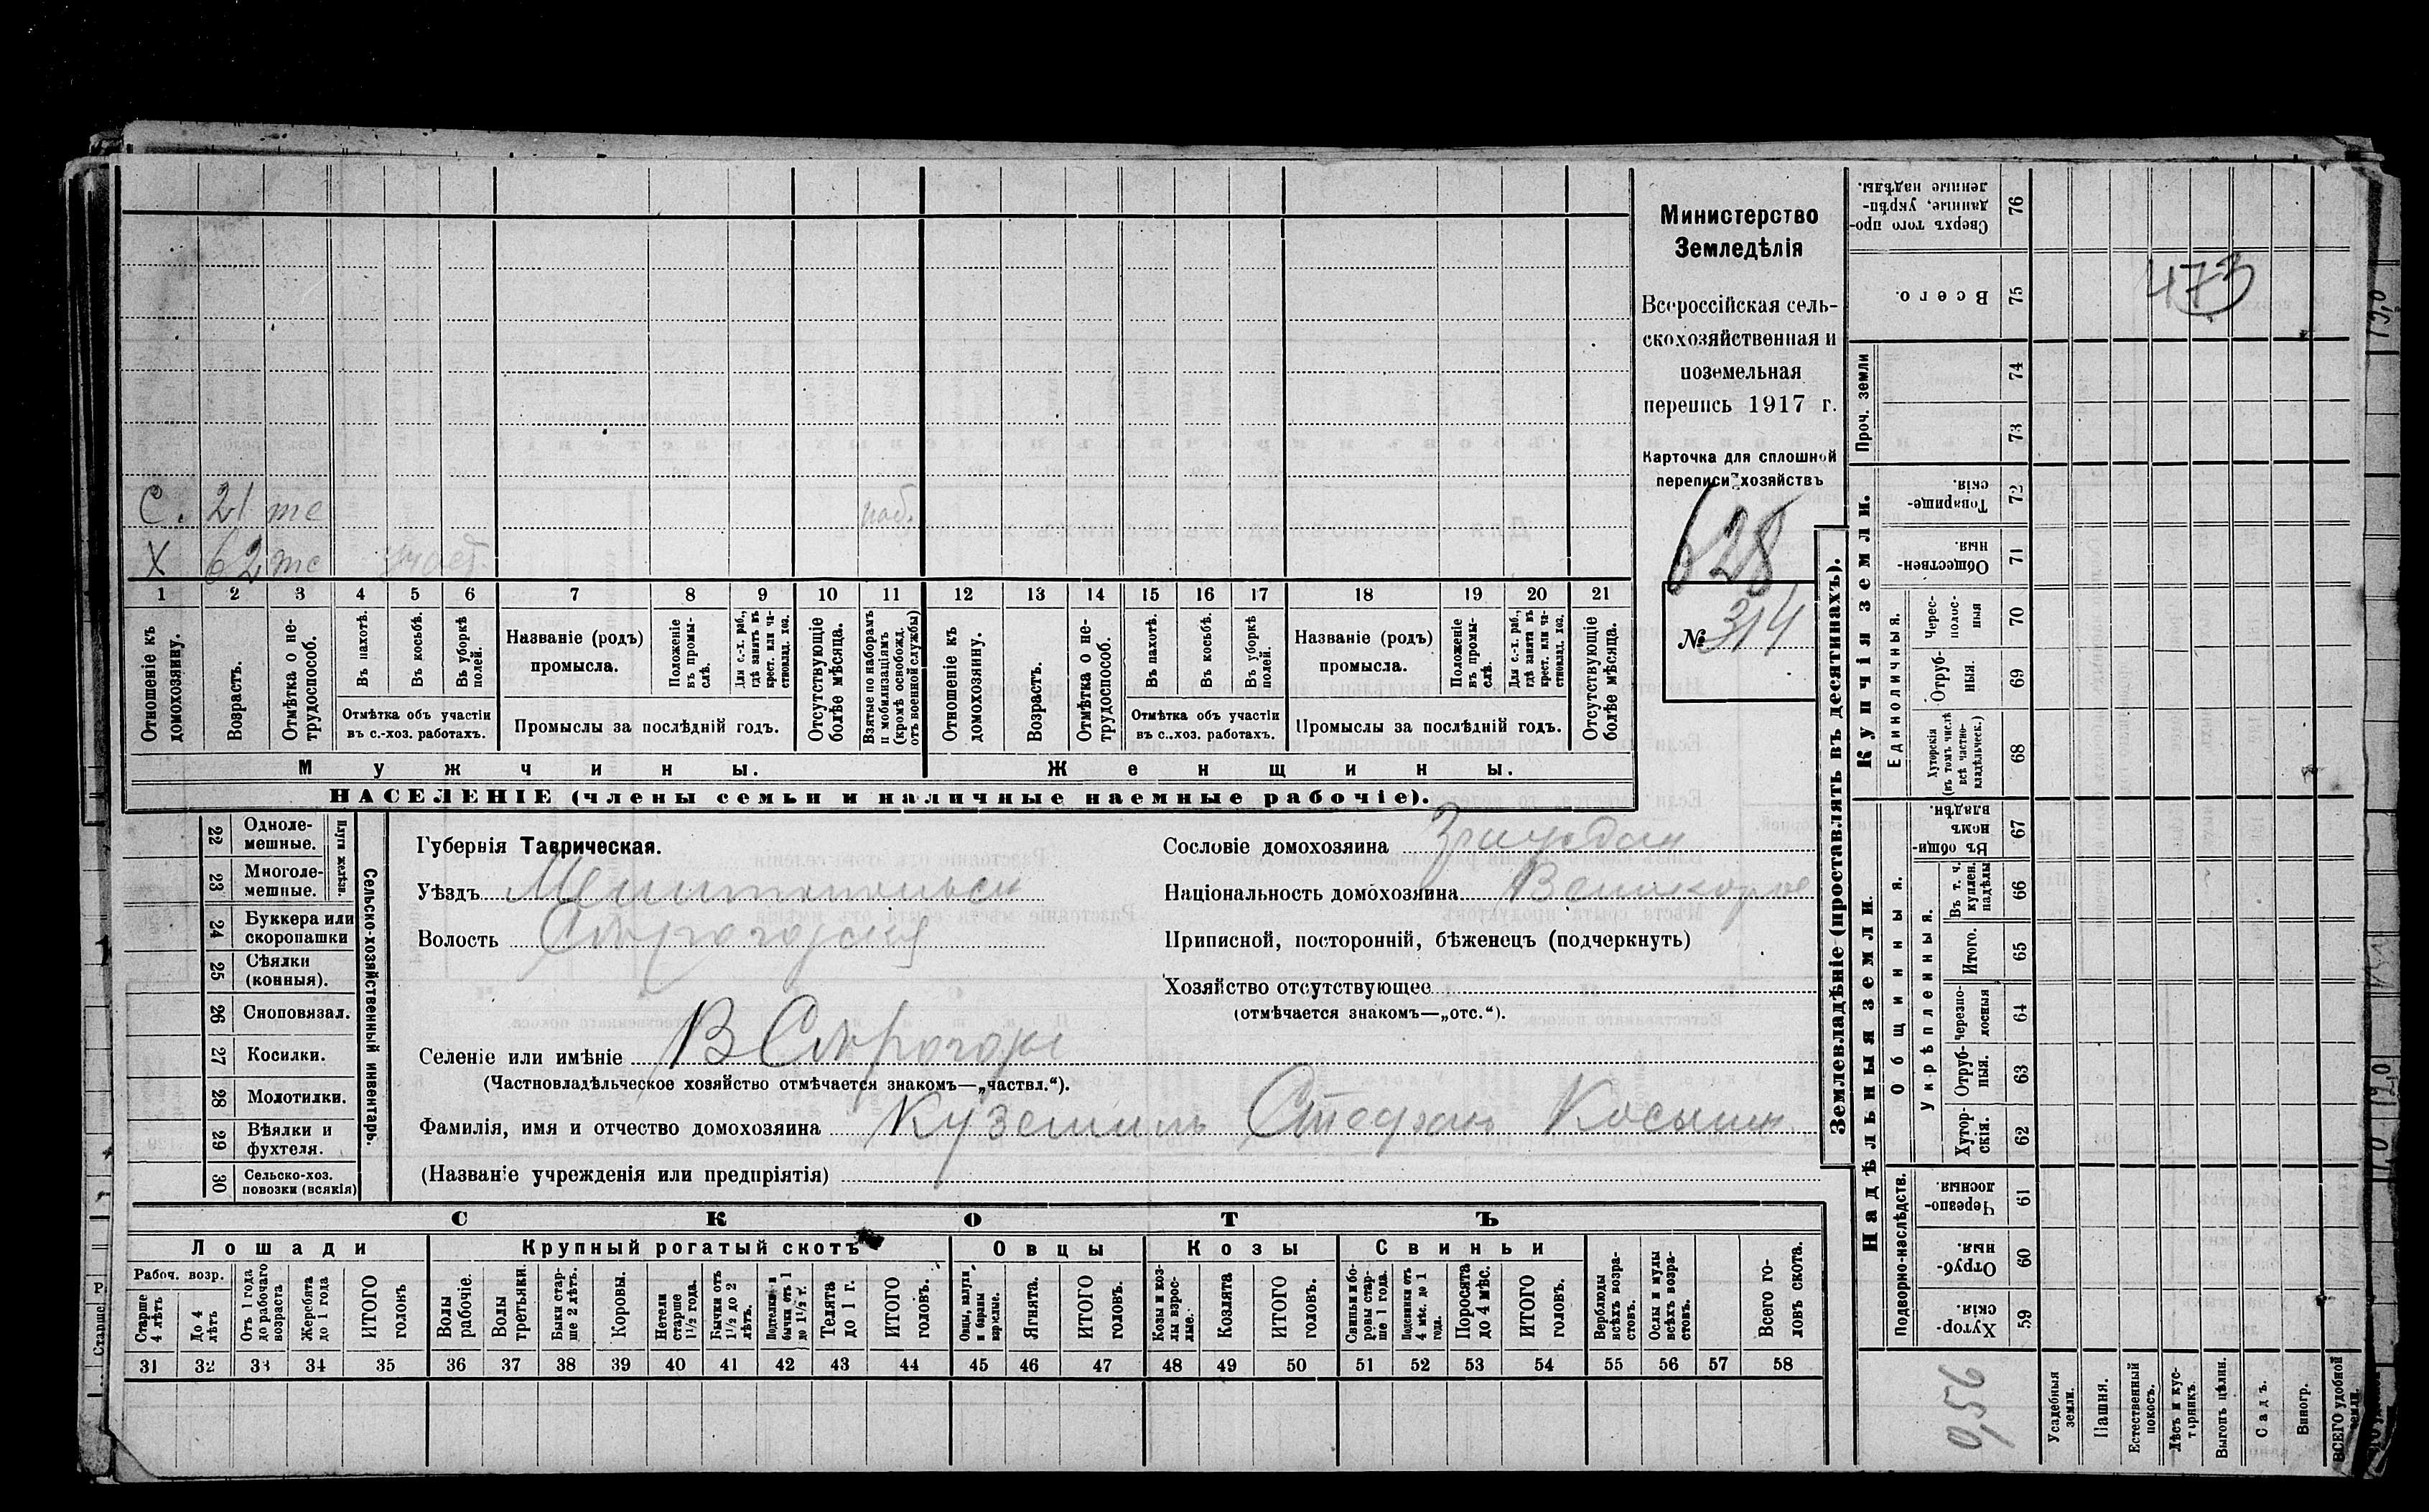 Министерство
Земледѣлія
Всероссійская сель-
скохозяйственная и
поземельная
перепись 1917 г.
Карточка для сплошной
переписи хозяйствъ
628
№ 314
473
С. 21 тс
X 62 тс
1 2 3 4 5 6 7 8 9 10 11 12 13 14 15 16 17 18 19 20 21
Отношеніе къ домохозяину.
Возрастъ.
Отмѣтка о не-трудоспособ.
Въ пахотѣ.
Въ косьбѣ.
Въ уборкѣ полей.
Отмѣтка объ участіи
въ с.-хоз. работахъ.
Названіе (родъ)
промысла.
Положеніе въ промы-слѣ.
Для с.-х. раб., гдѣ занятъ въ крест. или ча-стновлад. хоз.
Промыслы за послѣдній годъ.
Отсутствующіе болѣе мѣсяца.
Взятые по наборамъ и мобилизаціямъ (кромѣ освобожд. отъ военной службы)
Отношеніе къ домохозяину.
Возрастъ.
Отмѣтка о не-трудоспособ.
Въ пахотѣ.
Въ косьбѣ.
Въ уборкѣ полей.
Отмѣтка объ участіи
въ с..хоз. работахъ.
Названіе (родъ)
промысла.
Положеніе въ промы-слѣ.
Для с.-х. раб., гдѣ занятъ въ крест. или ча-стновлад. хоз.
Промыслы за послѣдній годъ.
Отсутствующіе болѣе мѣсяца.
Мужчины. Женщины.
НАСЕЛЕНІЕ (члены семьи и наличные наемные рабочіе).
22 Одноле-мешные.
23 Многоле-мешные.
Плуги желѣзн.
24 Буккера или скоропашки
25 Сѣялки (конныя).
26 Сноповязал.
27 Косилки.
28 Молотилки.
29 Вѣялки и фухтеля.
30 Сельско-хоз. повозки (всякія)
Сельско-хозяйственный инвентарь.
Губернія Таврическая.
Уѣздъ Мелитопольск
Волость
Селеніе или имѣніе
(Частновладѣльческое хозяйство отмѣчается знакомъ—„частвл.“).
Фамилія, имя и отчество домохозяина Стефанъ
(Названіе учрежденія или предпріятія)
Сословіе домохозяина
Національность домохозяина Великорос
Приписной, посторонній, бѣженецъ (подчеркнуть)
Хозяйство отсутствующее
(отмѣчается знакомъ—„отс.“).
СКОТЪ
Лошади Крупный рогатый скотъ Овцы Козы Свиньи
Рабоч. возр.
Старше 4 лѣтъ
До 4 лѣтъ
Отъ 1 года до рабочаго возраста
Жеребята до 1 года
ИТОГО головъ
Волы рабочіе.
Волы третьяки.
Быки стар-ше 2 лѣтъ.
Коровы.
Нетели старше 1½ года.
Бычки отъ 1½ до 2 лѣтъ.
Подтелки и бычки отъ 1 до 1½ г.
Телята до 1 г.
ИТОГО головъ.
Овцы, валухи и бараны взрослые.
Ягнята.
ИТОГО головъ.
Козы и коз-лы взрос-лые.
Козлята
ИТОГО головъ.
Свиньи и бо-ровы стар-ше 1 года.
Подсвинки отъ 4 мѣс. до 1 года.
Поросята до 4 мѣс.
ИТОГО головъ.
Верблюды всѣхъ возра-стовъ.
Ослы и мулы всѣхъ возра-стовъ.
Всего го-ловъ скота.
31 32 33 34 35 36 37 38 39 40 41 42 43 44 45 46 47 48 49 50 51 52 53 54 55 56 57 58
Землевладѣніе (проставлять въ десятинахъ).
Надѣльныя земли. Купчія земли.
Подворно-наслѣдств.
Общинныя.
Укрѣпленныя.
Единоличныя.
Проч. земли
76 Сверхъ того про-данные, укрѣп-ленные надѣлы.
75 Всего.
74
73
72 Товарище-скія.
71 Обществен-ныя.
70 Черес-полос-ныя
69 Отруб-ныя.
68 Хуторскія (въ томъ числѣ всѣ частно-владѣльческ.)
67 Въ общи-номъ владѣн.
66 Въ т. ч. куплен. надѣлы
65 Итого.
64 Черезпо-лосныя
63 Отруб-ныя.
62 Хутор-скія.
61 Черезпо-лосныя.
60 Отруб-ныя
59 Хутор-скія.
0,56
Усадебныя земли.
Пашня.
Естественный покосъ.
Лѣсъ и кус-тарникъ.
Выгонъ цѣлин.
Садъ.
Виногр.
ВСЕГО удобной земли.